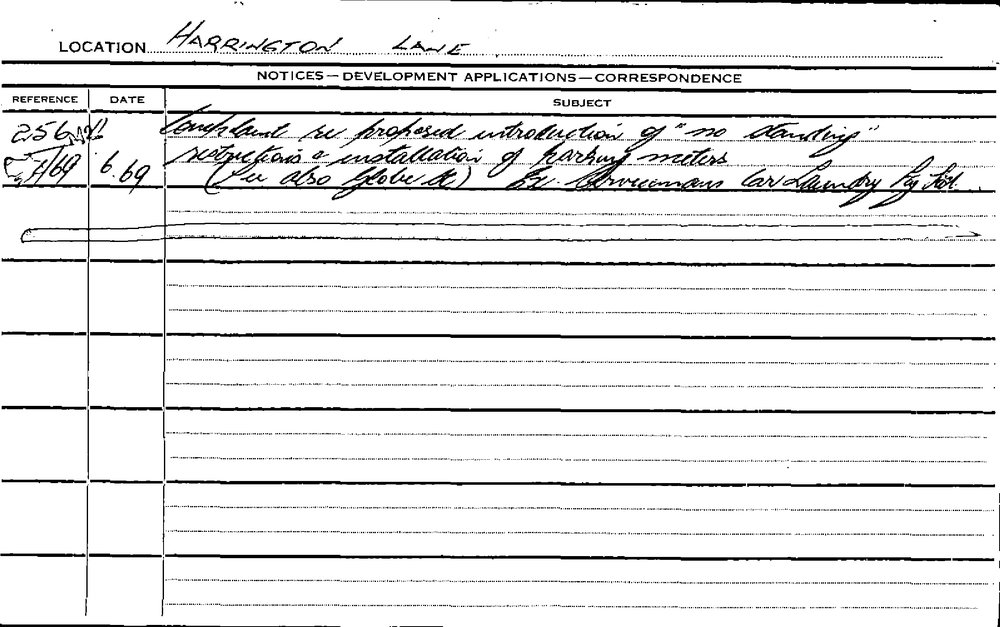 LOCATION HARRINGTON LANE
NOTICES — DEVELOPMENT APPLICATIONS — CORRESPONDENCE
REFERENCE DATE SUBJECT
256 Complaint re proposed introduction of "no standing"
/69 6.69 restrictions & installation of parking meters
(See also Globe St) Car Laundry Pty Ltd.